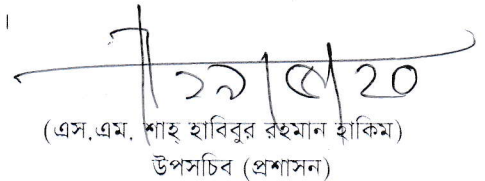 ২৯/৫/২০
(এস.এম. শাহ্ হাবিবুর রহমান হাকিম)
উপসচিব (প্রশাসন)